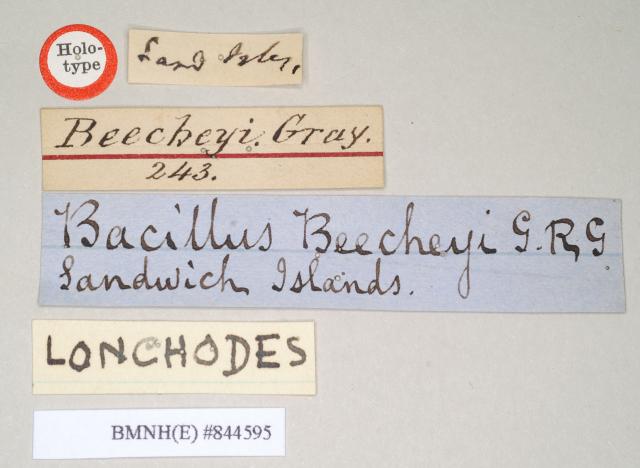 Holo-
type
Sand Isles,
Beecheyi. Gray.
243.
Bacillus Beecheyi G.R,G
Sandwich Islands.
LONCHODES
BMNH(E) #844595